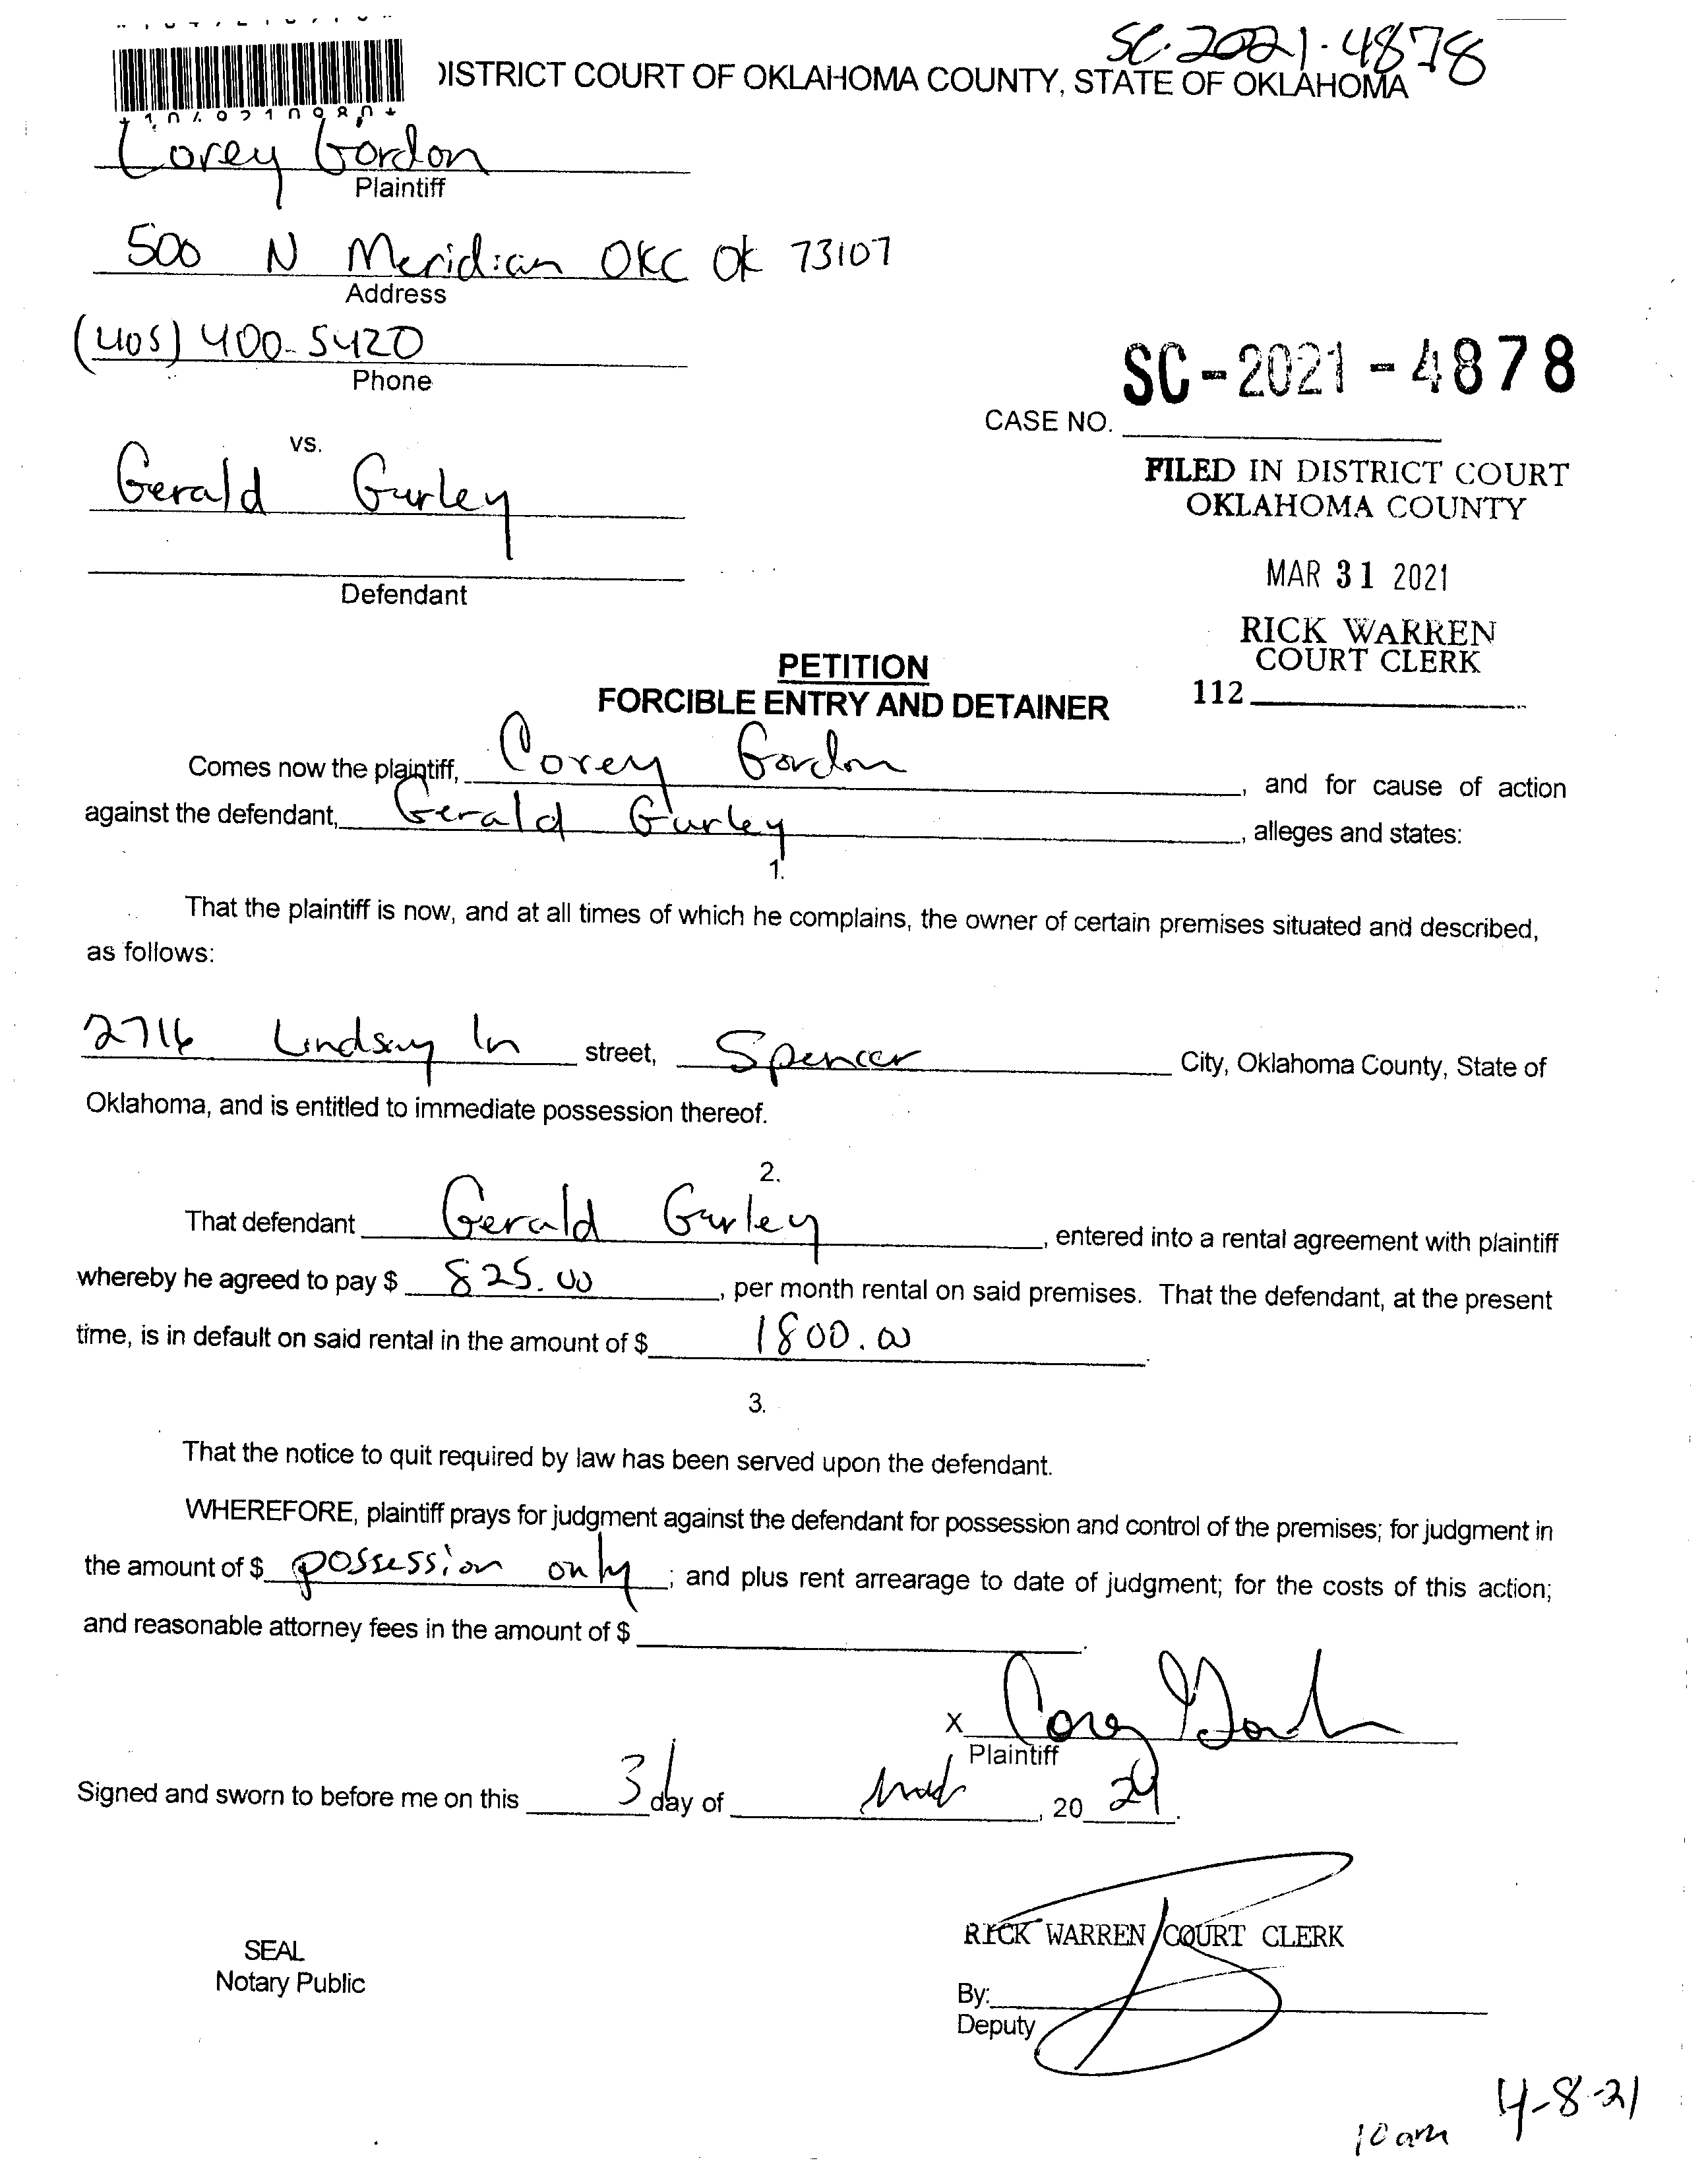 SC-2021-4878
DISTRICT COURT OF OKLAHOMA COUNTY, STATE OF OKLAHOMA
Corey Gordon
Plaintiff
500 N Meridian OKC OK 73107
Address
(405) 400-5420
Phone
SC-2021-4878
CASE NO.
vs.
Gerald Gurley
FILED IN DISTRICT COURT
OKLAHOMA COUNTY
MAR 31 2021
Defendant
RICK WARREN
COURT CLERK
112
PETITION
FORCIBLE ENTRY AND DETAINER
Comes now the plaintiff, Corey Gordon, and for cause of action
against the defendant, Gerald Gurley, alleges and states:
1.
That the plaintiff is now, and at all times of which he complains, the owner of certain premises situated and described,
as follows:
2716 Lindsay ln street, Spencer City, Oklahoma County, State of
Oklahoma, and is entitled to immediate possession thereof.
2.
That defendant Gerald Gurley, entered into a rental agreement with plaintiff
whereby he agreed to pay $ 825.00, per month rental on said premises. That the defendant, at the present
time, is in default on said rental in the amount of $ 1800.00.
3.
That the notice to quit required by law has been served upon the defendant.
WHEREFORE, plaintiff prays for judgment against the defendant for possession and control of the premises; for judgment in
the amount of $ possession only; and plus rent arrearage to date of judgment; for the costs of this action;
and reasonable attorney fees in the amount of $
x Corey Gordon
Plaintiff
Signed and sworn to before me on this day of , 20 .
RICK WARREN COURT CLERK
SEAL
Notary Public
By:
Deputy
4-8-21
10 am